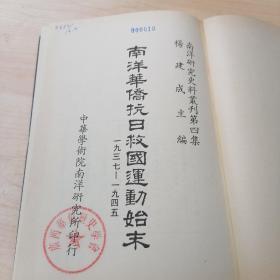 南洋研究史料叢刊第四集
楊建成主編
南洋華僑抗日救國運動始末
一九三七—一九四五
中華學術院南洋研究所印行